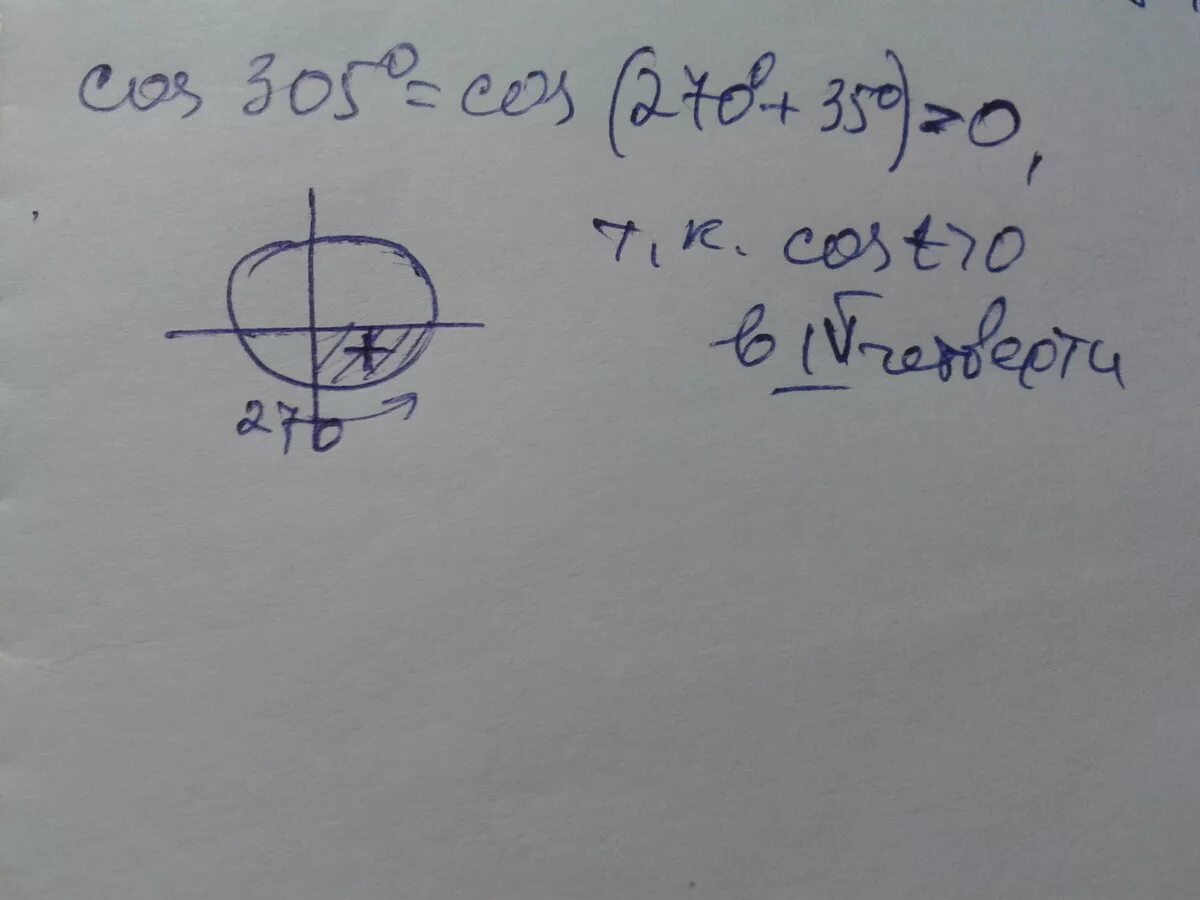 cos 305⁰ = cos (270⁰ + 35⁰) > 0,
т.к. cos t > 0
в IV четверти
+
270